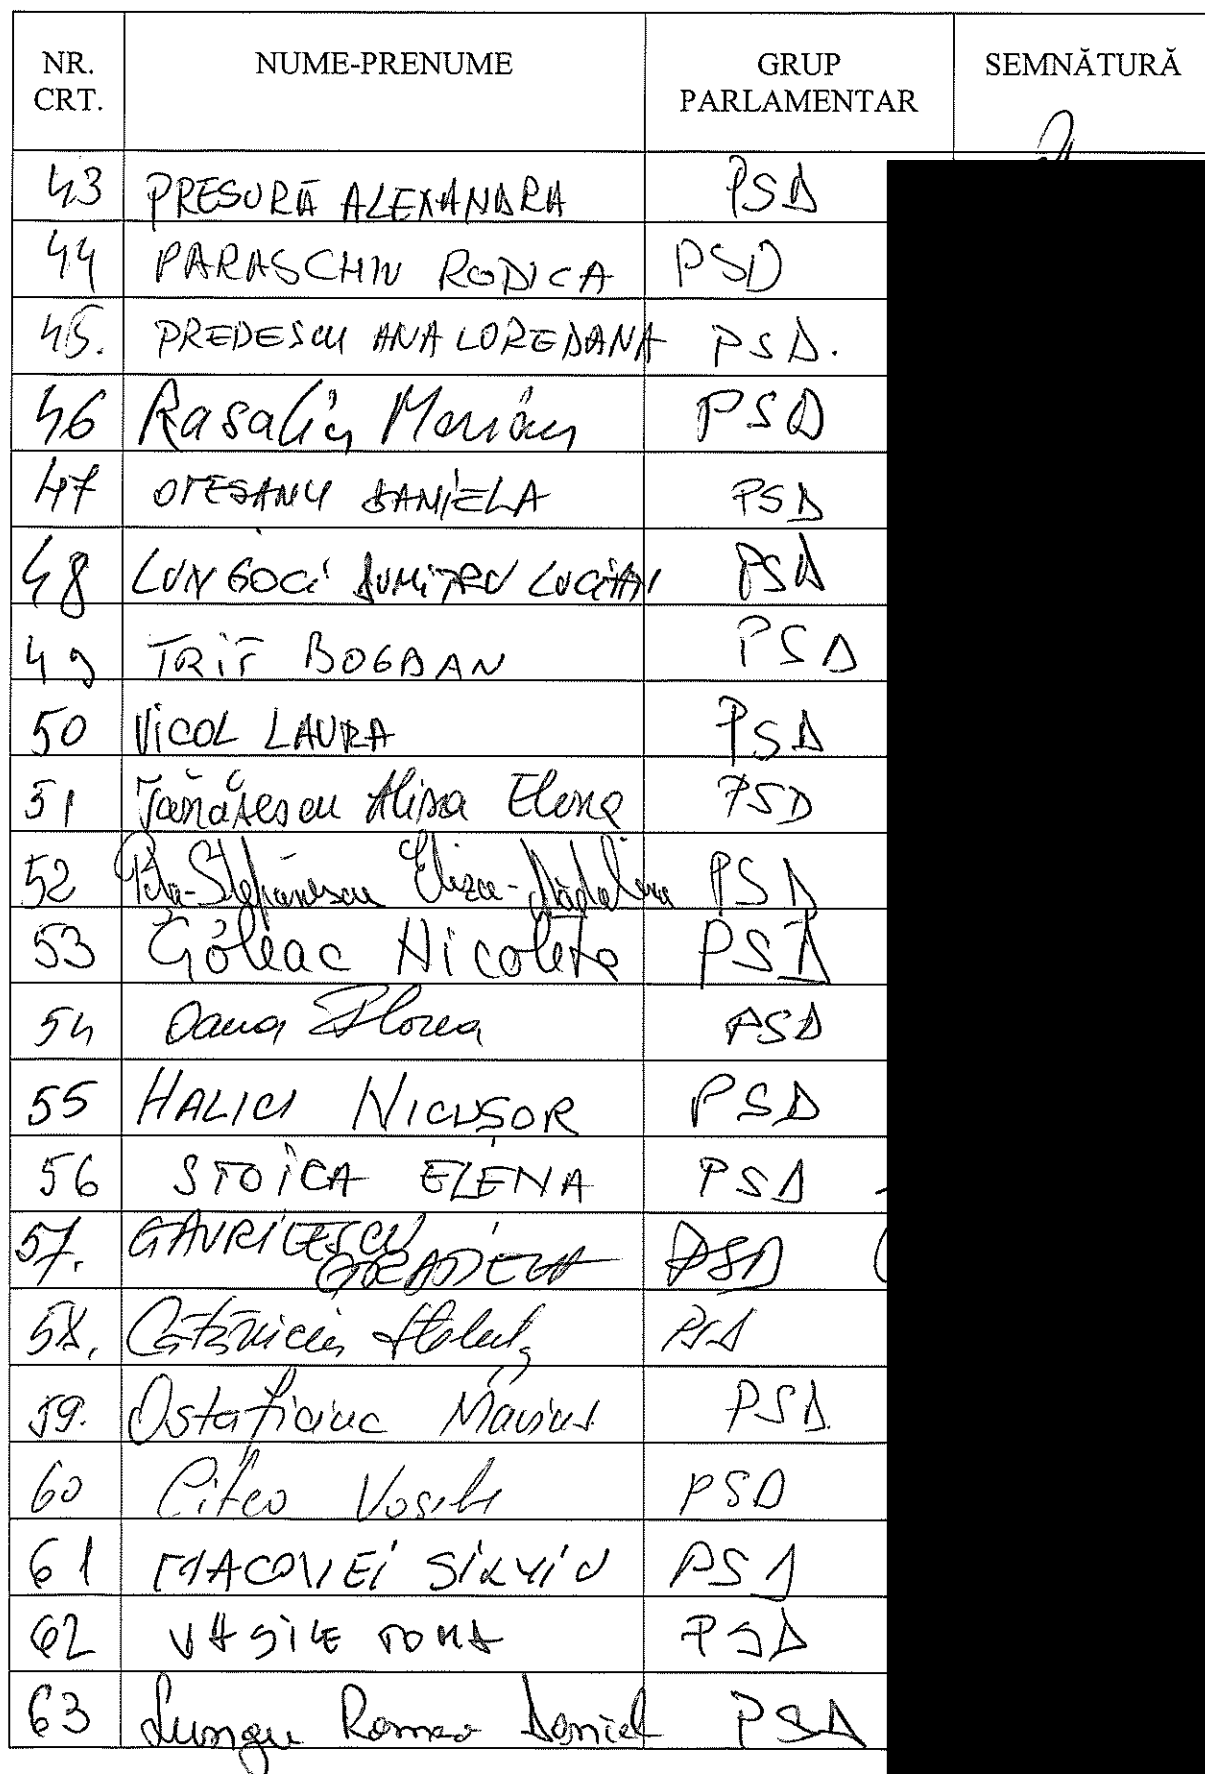 NR. CRT. NUME-PRENUME GRUP PARLAMENTAR SEMNĂTURĂ
43 PRESURĂ ALEXANDRA PSD
44 PARASCHIV RODICA PSD
45. PREDESCU ANA LOREDANA PSD.
46 Rasaliu Marian PSD
47 OTEȘANU DANIELA PSD
48 LUNGOCI DUMITRU LUCIAN PSD
49 TRIF BOGDAN PSD
50 VICOL LAURA PSD
51 Tănăsescu Alina Elena PSD
52 Peța-Ștefănescu Eliza-Mădălina PSD
53 Țoleac Nicoleta PSD
54 Oana Florea PSD
55 HALICI NICUȘOR PSD
56 STOICA ELENA PSD
57. GAVRILESCU GRAȚIELA PSD
58. PSD
59. Ostaficiuc Marius PSD
60 Cîtea Vasile PSD
61 MACOVEI SILVIU PSD
62 VASILE TOMA PSD
63 Lungu Romeo Daniel PSD